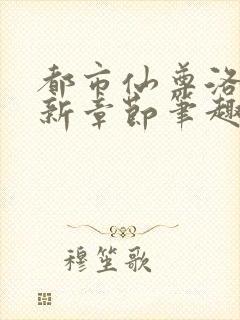 都市仙尊洛
新章节笔趣
穆笙歌